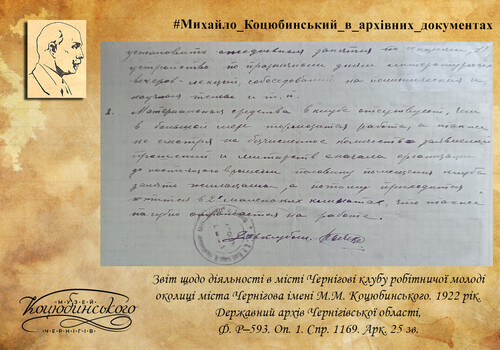 #Михайло_Коцюбинський_в_архівних_документах
установить ежедневные занятия по
устройство по праздничным дням литературных
вечеров-лекций, собеседований на политические и
научные темы и т. п.
Материальные средства в клубе отсутствуют, чем
в большой мере тормозится работа, а также
не смотря на бузчисленное количество заявлений
прошений и мытарств сначала организации
до настоящего времени половину помещения клуба
занято жильцами, а потому приходится
ютится в 2х маленьких комнатах, что также
пагубно отражается на работе.
МУЗЕЙ
Коцюбинського
ЧЕРНІГІВ
Звіт щодо діяльності в місті Чернігові клубу робітничої молоді
околиці міста Чернігова імені М.М. Коцюбинського. 1922 рік.
Державний архів Чернігівської області,
Ф. Р–593. Оп. 1. Спр. 1169. Арк. 25 зв.